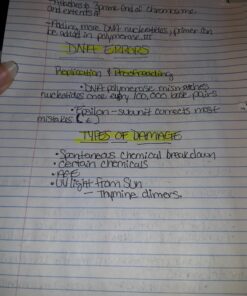 and extends it
- Adding more DNA nucleotides, primer can
be added in polymerase III
DNA ERRORS
Replication & Proofreading
• DNA polymerase mismatches
nucleotides once every 100,000 base pairs
• Epsilon - subunit corrects most
mistakes [ε]
TYPES OF DAMAGES
• Spontaneous chemical breakdown
• Certain chemicals
• AGE
• UV light from Sun
- Thymine dimers.